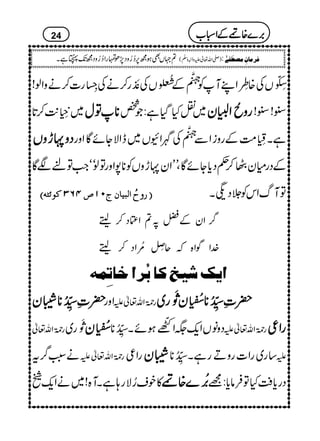 24 برے خاتمے کے اسباب
فرمانِ مصطفےٰ (صلی اللہ تعالیٰ علیہ والہ وسلم) تم جہاں بھی ہو مجھ پر دُرُود پڑھو تمہارا دُرُود مجھ تک پہنچتا ہے۔
سِکّوں کی خاطر اپنے آپ کو جہنَّم کے شعلوں کی نَذر کرنے کی جسارت کرنے والو!
سنو! سنو! روحُ البیان میں نَقل کیا گیا ہے: جو شخص ناپ تول میں خِیانت کرتا
ہے۔ قیامت کے روز اسے جہنَّم کی گہرائیوں میں ڈالا جائے گا اور دو پہاڑوں
کے درمیان بٹھا کر حکم دیا جائے گا، ”ان پہاڑوں کو ناپو اور تولو“ جب تولنے لگے گا
تو آگ اس کو جلا دیگی۔ (روحُ البیان ج۱۰ ص ۳۶۴ کوئٹہ)
گر ان کے فضل پہ تم اعتماد کر لیتے
خدا گواہ کہ حاصِل مُراد کر لیتے
ایک شیخ کا بُرا خاتِمہ
حضرتِ سیِّدُنا سُفیان ثَوری رحمۃ اللہ تعالیٰ علیہ اور حضرتِ سیِّدُنا شیبان
راعی رحمۃ اللہ تعالیٰ علیہ دونوں ایک جگہ اکٹھے ہوئے۔ سیِّدُنا سُفیان ثَوری رحمۃ اللہ تعالیٰ
علیہ ساری رات روتے رہے۔ سیِّدُنا شیبان راعی رحمۃ اللہ تعالیٰ علیہ نے سببِ گِریہ
دریافت کیا تو فرمایا: مجھے بُرے خاتمے کا خوف رُلا رہا ہے۔ آہ! میں نے ایک شیخ